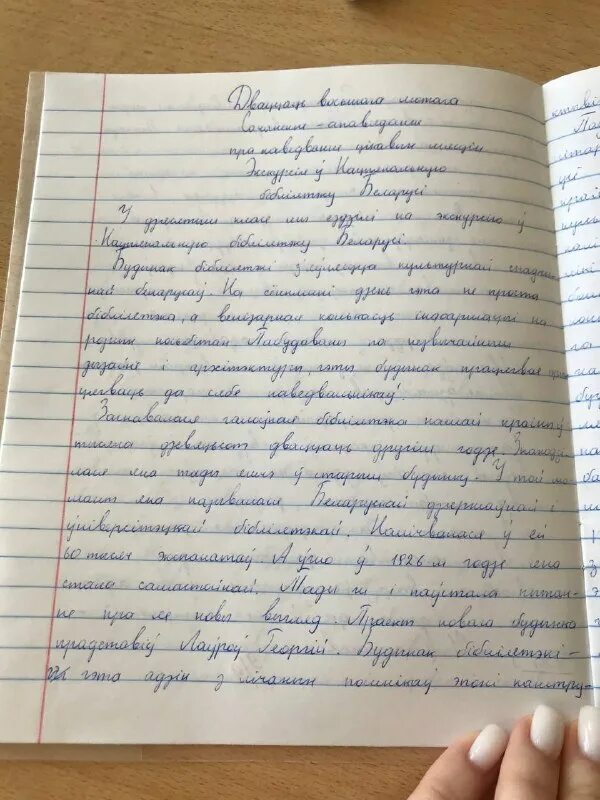 Дваццаць восьмага лютага
Сачыненне - апавяданне
пра наведванне цікавых мясцін
Экскурсія ў Нацыянальную
бібліятэку Беларусі
У дзявятым класе мы ездзілі на экскурсію ў
Нацыянальную бібліятэку Беларусі.
Будынак бібліятэкі з'яўляецца культурнай спадчы-
най беларусаў. На сённяшні дзень гэта не проста
бібліятэка, а велізарная колькасць инфармацыі на
розных носьбітах. Пабудаваны па незвычайным
дизайне і архітэктуры, гэты будынак працягвае
цягваць да сябе наведвальнікаў.
Заснавалася галоўная бібліятэка нашай краіны ў
тысяча дзевяцьсот дваццаць другім годзе. Знаходзі-
лася яна тады яшчэ ў старым будынку. У той мо-
мант яна называлася Беларускай дзяржаўнай і
ўніверсітэцкай бібліятэкай. Налічвалася ў ёй
60 тысяч экспанатаў. А ўжо ў 1926-м годзе яна
стала самастойнай. Тады ж і паўстала пытан-
не пра яе новы выгляд. Праект новага будынка
прадставіў Лаўроў Георгій. Будынак бібліятэкі -
гэта адзін з лічаных помнікаў эпохі канстру-